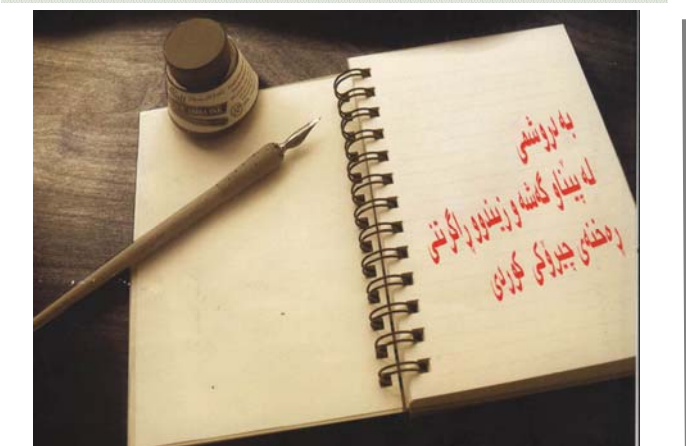 بە دروشمی
لە پێناو گەشە و زیندوو ڕاگرتنی
ڕەخنەی چیرۆکی کوردی